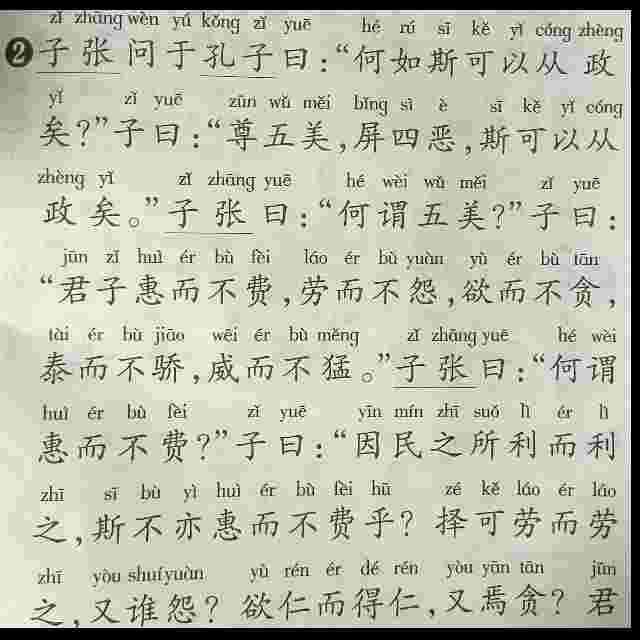 zǐ zhāng wèn yú kǒng zǐ yuē hé rú sī kě yǐ cóng zhèng
❷子张问于孔子曰:“何如斯可以从政
yǐ zǐ yuē zūn wǔ měi bǐng sì è sī kě yǐ cóng
矣?”子曰:“尊五美,屏四恶,斯可以从
zhèng yǐ zǐ zhāng yuē hé wèi wǔ měi zǐ yuē
政矣。”子张曰:“何谓五美?”子曰:
jūn zǐ huì ér bù fèi láo ér bù yuàn yù ér bù tān
“君子惠而不费,劳而不怨,欲而不贪,
tài ér bù jiāo wēi ér bù měng zǐ zhāng yuē hé wèi
泰而不骄,威而不猛。”子张曰:“何谓
huì ér bù fèi zǐ yuē yīn mín zhī suǒ lì ér lì
惠而不费?”子曰:“因民之所利而利
zhī sī bù yì huì ér bù fèi hū zé kě láo ér láo
之,斯不亦惠而不费乎?择可劳而劳
zhī yòu shuí yuàn yù rén ér dé rén yòu yān tān jūn
之,又谁怨?欲仁而得仁,又焉贪?君